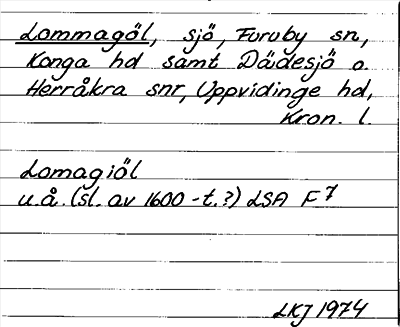 Lommagöl, sjö, Furuby sn,
Konga hd samt Dädesjö o.
Herråkra snr, Uppvidinge hd,
Kron. l.
Lomagiöl
u.å. (sl. av 1600-t.?) LSA F 7
LKJ 1974